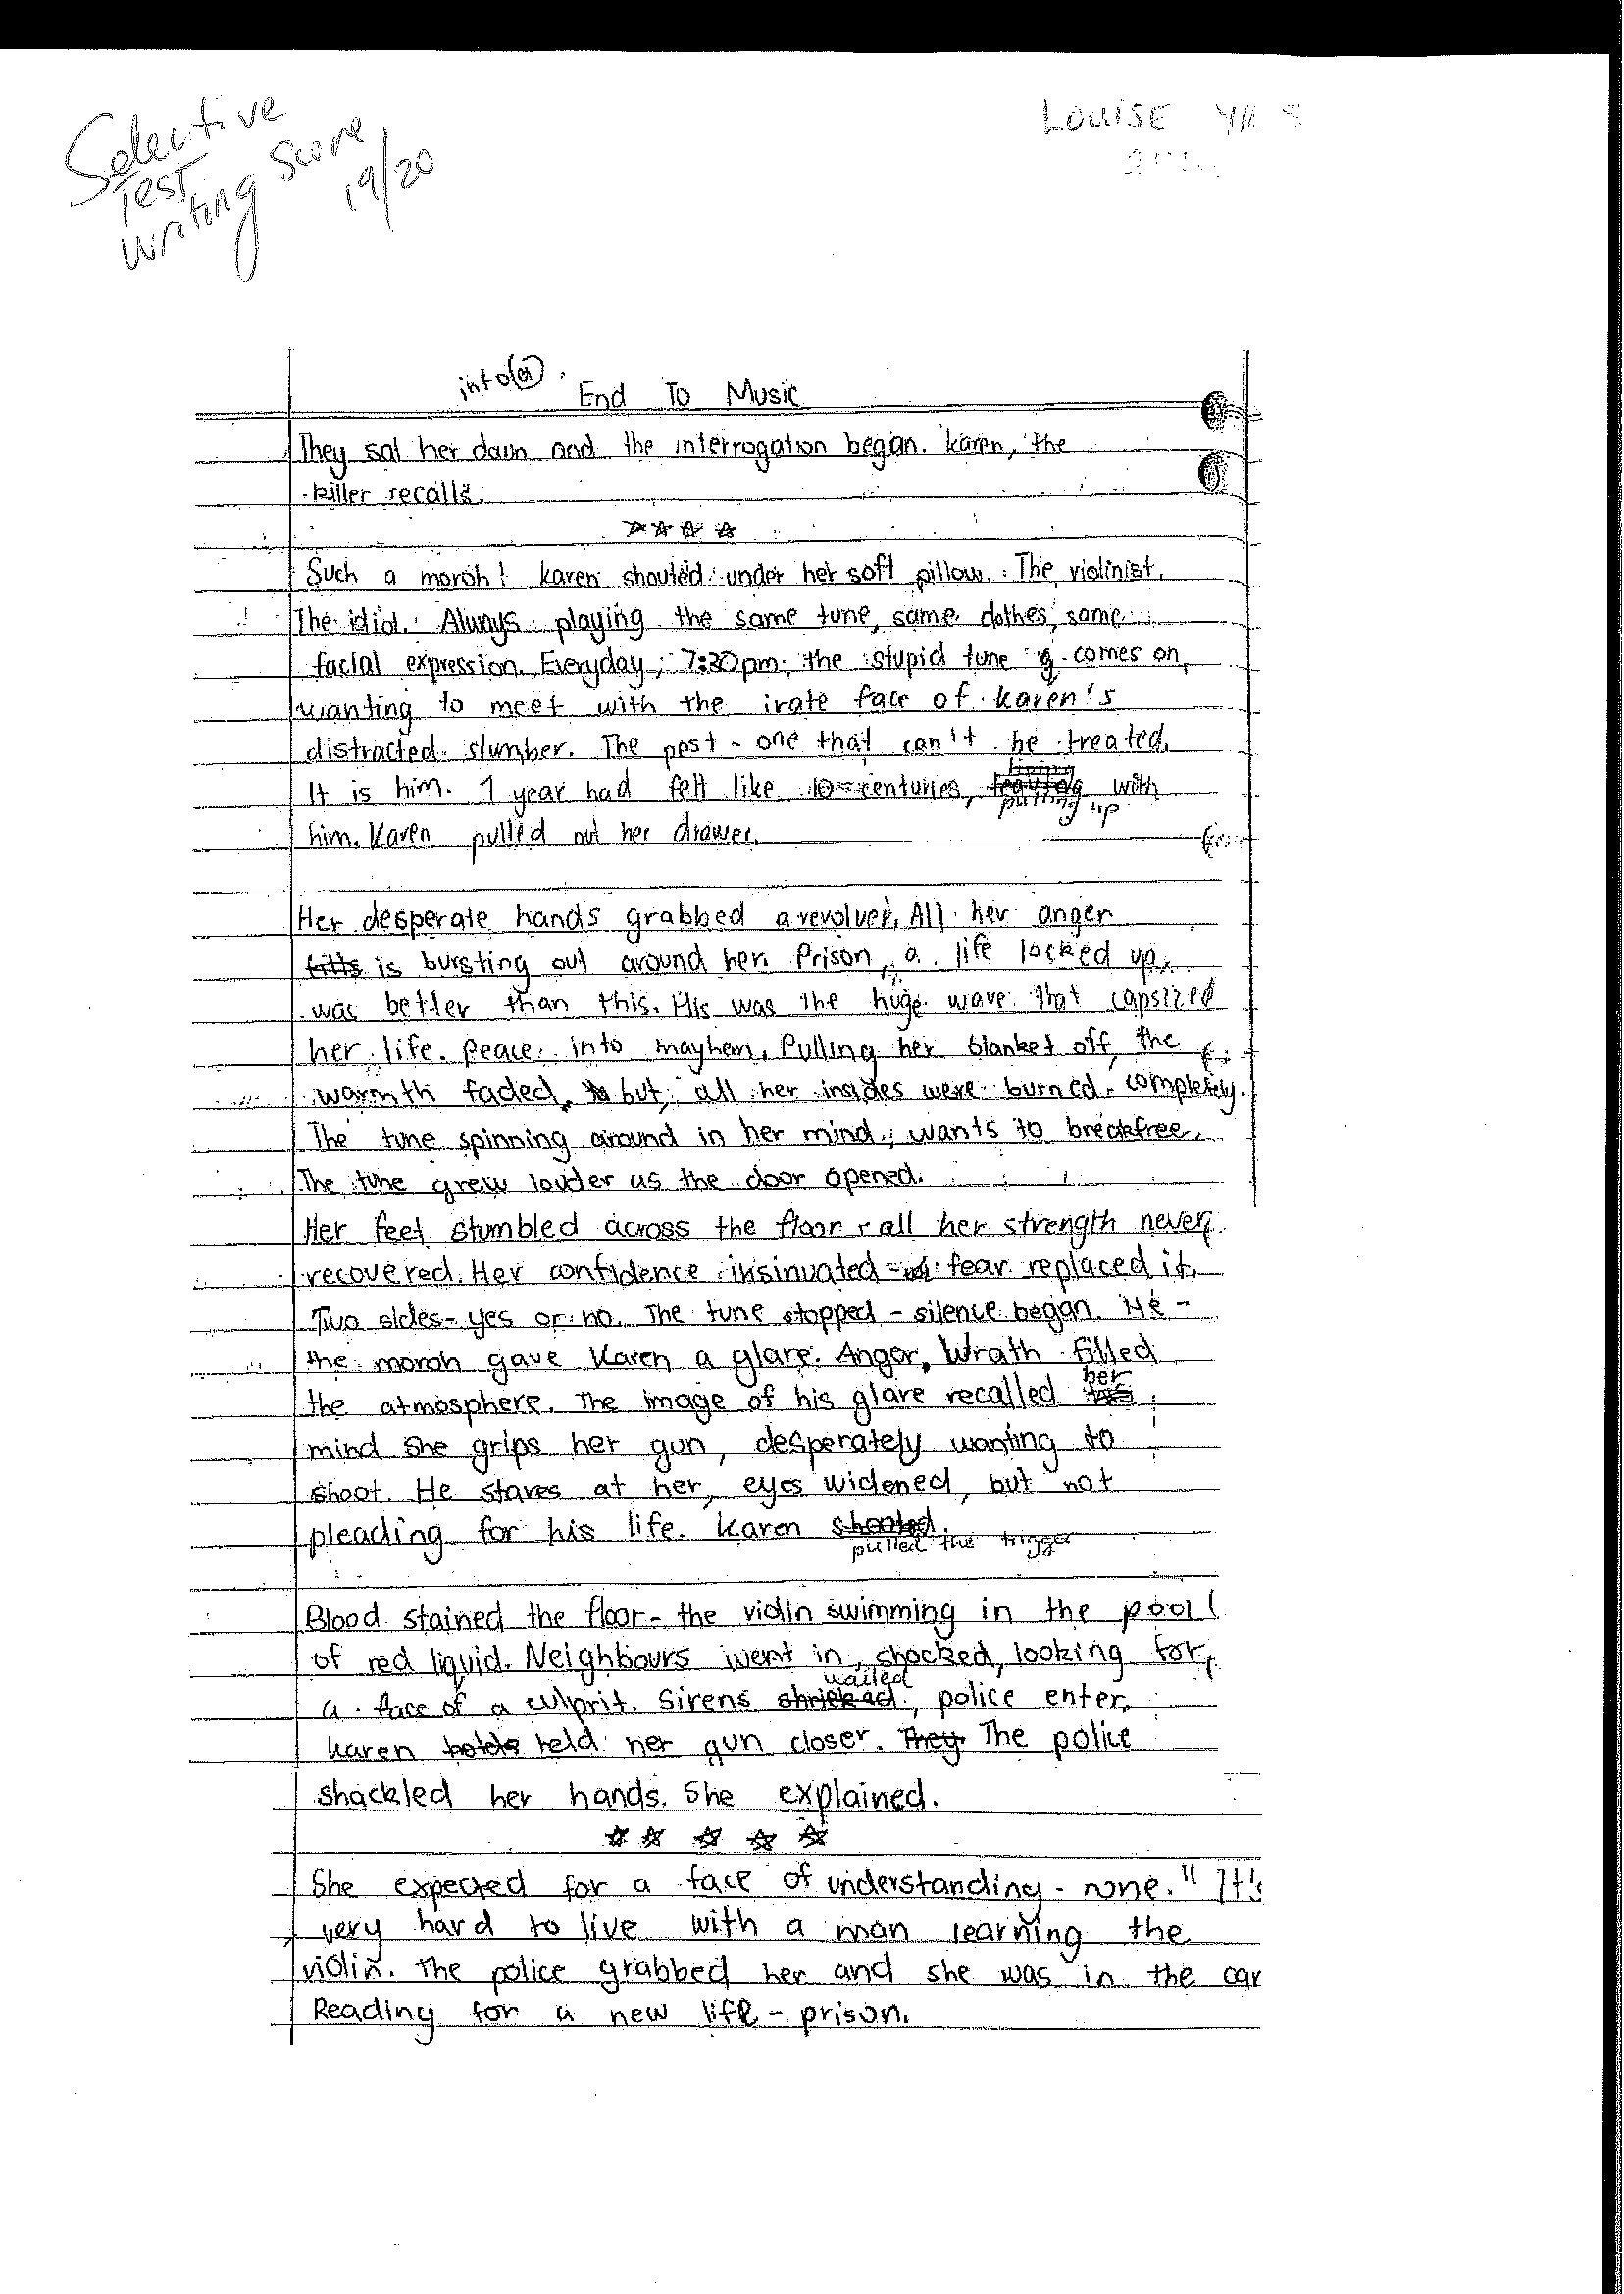 Selective
Test
Writing Score
19/20
LOUISE YR
into
End To Music
They sat her down and the interrogation began. Karen, the
killer recalls.
Such a moron! Karen shouted under her soft pillow. The violinist.
The idiot. Always playing the same tune, same clothes, same
facial expression. Everyday, 7:30pm, the stupid tune comes on,
wanting to meet with the irate face of Karen's
distracted slumber. The pest - one that can't be treated.
It is him. 1 year had felt like 10 centuries, putting up with
him. Karen pulled out her drawer.
Her desperate hands grabbed a revolver. All her anger
is bursting out around her. Prison, a life locked up,
was better than this. His was the huge wave that capsized
her life. Peace into mayhem. Pulling her blanket off, the
warmth faded, but all her insides were burned - completely.
The tune spinning around in her mind, wants to breakfree.
The tune grew louder as the door opened.
Her feet stumbled across the floor - all her strength never
recovered. Her confidence insinuated - fear replaced it.
Two sides - yes or no. The tune stopped - silence began. He -
the moron gave Karen a glare. Anger, Wrath filled
the atmosphere. The image of his glare recalled her
mind she grips her gun, desperately wanting to
shoot. He stares at her, eyes widened, but not
pleading for his life. Karen pulled the trigger
Blood stained the floor - the violin swimming in the pool
of red liquid. Neighbours went in, shocked, looking for,
a face of a culprit. Sirens wailed, police enter.
Karen held her gun closer. The police
shackled her hands. She explained.
She expected for a face of understanding - none. "It's
very hard to live with a man learning the
violin. The police grabbed her and she was in the car
Heading for a new life - prison.